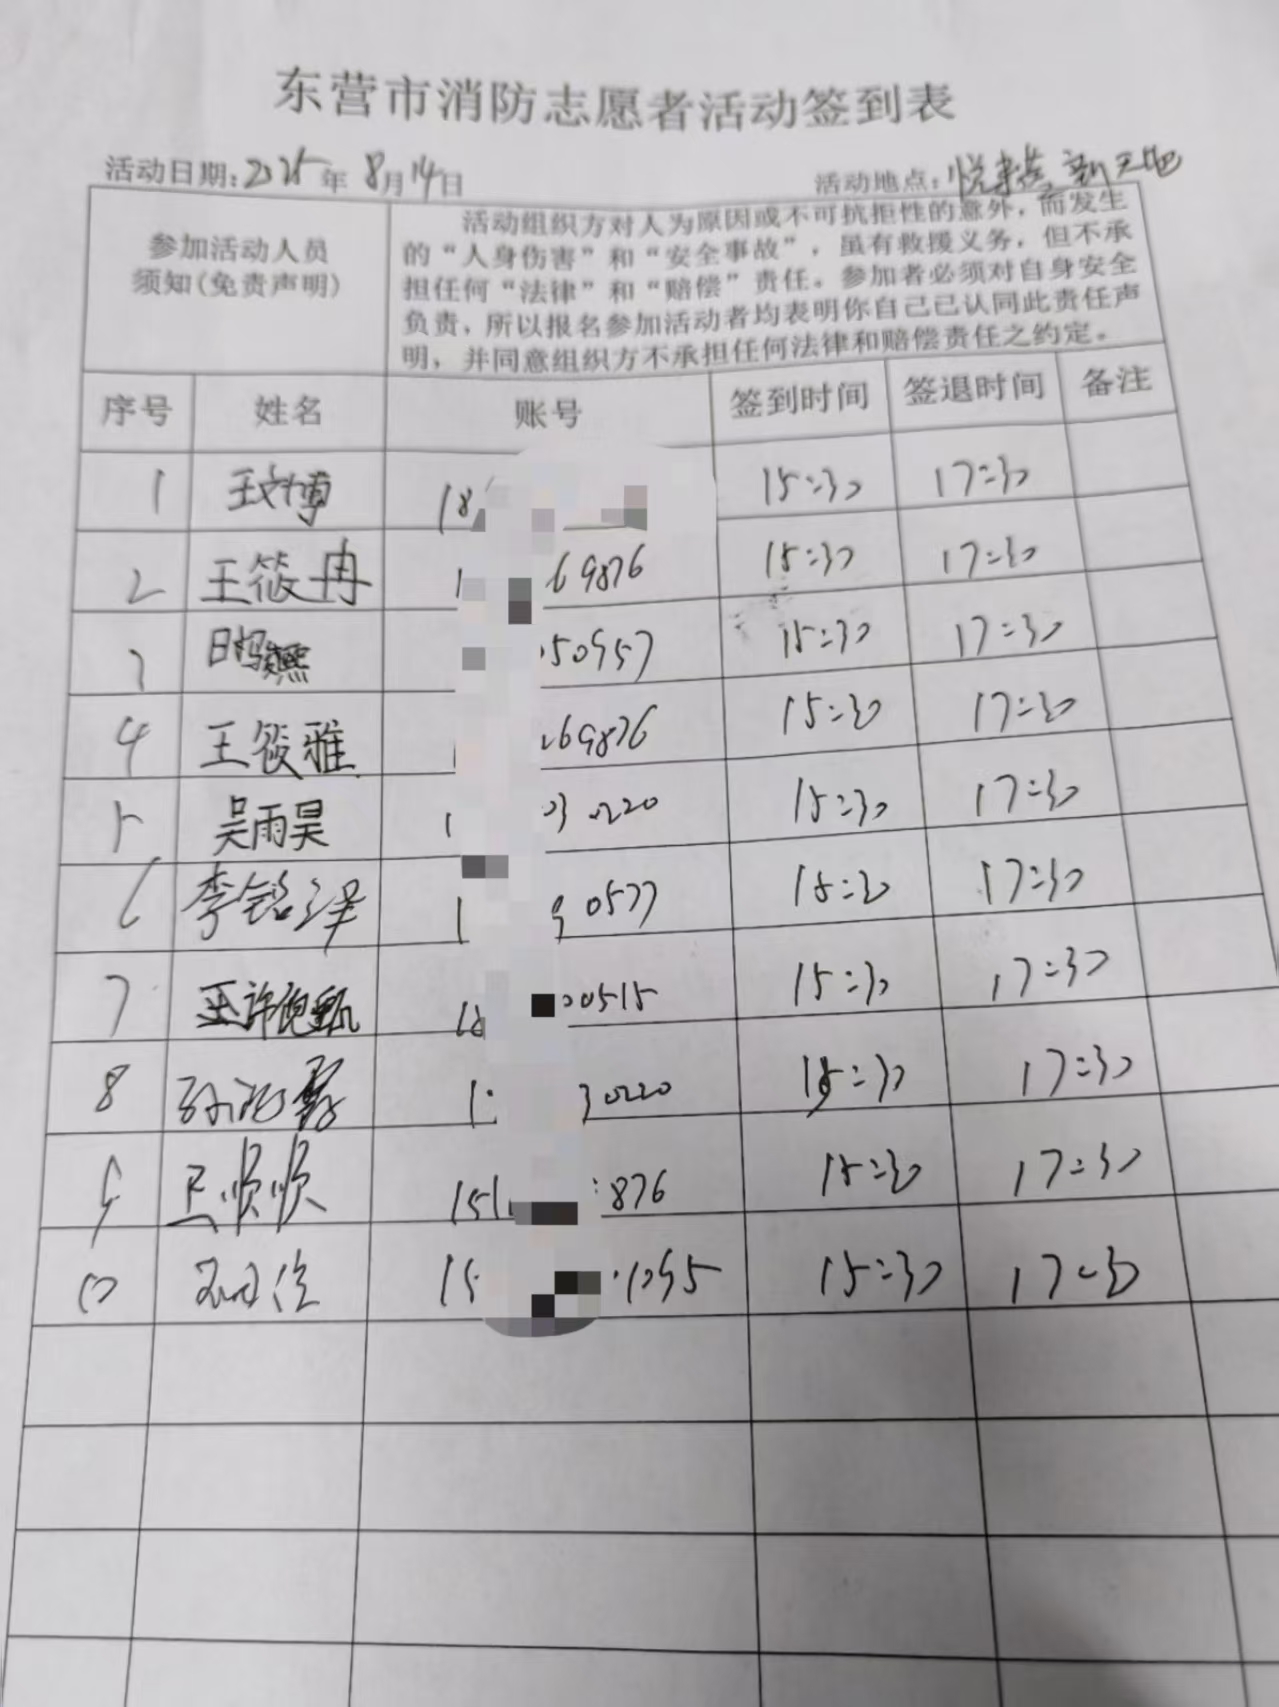 东营市消防志愿者活动签到表
活动日期:2025年8月14日 活动地点:悦来 新天地
参加活动人员
须知(免责声明)
活动组织方对人为原因或不可抗拒性的意外，而发生
的“人身伤害”和“安全事故”，虽有救援义务，但不承
担任何“法律”和“赔偿”责任。参加者必须对自身安全
负责，所以报名参加活动者均表明你自己已认同此责任声
明，并同意组织方不承担任何法律和赔偿责任之约定。
序号 姓名 账号 签到时间 签退时间 备注
1 王文博 18 15:30 17:30
2 王筱冉 1 69876 15:30 17:30
3 50957 15:30 17:30
4 王筱雅 69876 15:30 17:30
5 吴雨昊 1 03 0220 15:30 17:30
6 李铭泽 1 90577 15:30 17:30
7 王许 18 00515 15:30 17:30
8 1 30220 15:30 17:30
9 王顺顺 151 876 15:30 17:30
10 15 1095 15:30 17:30